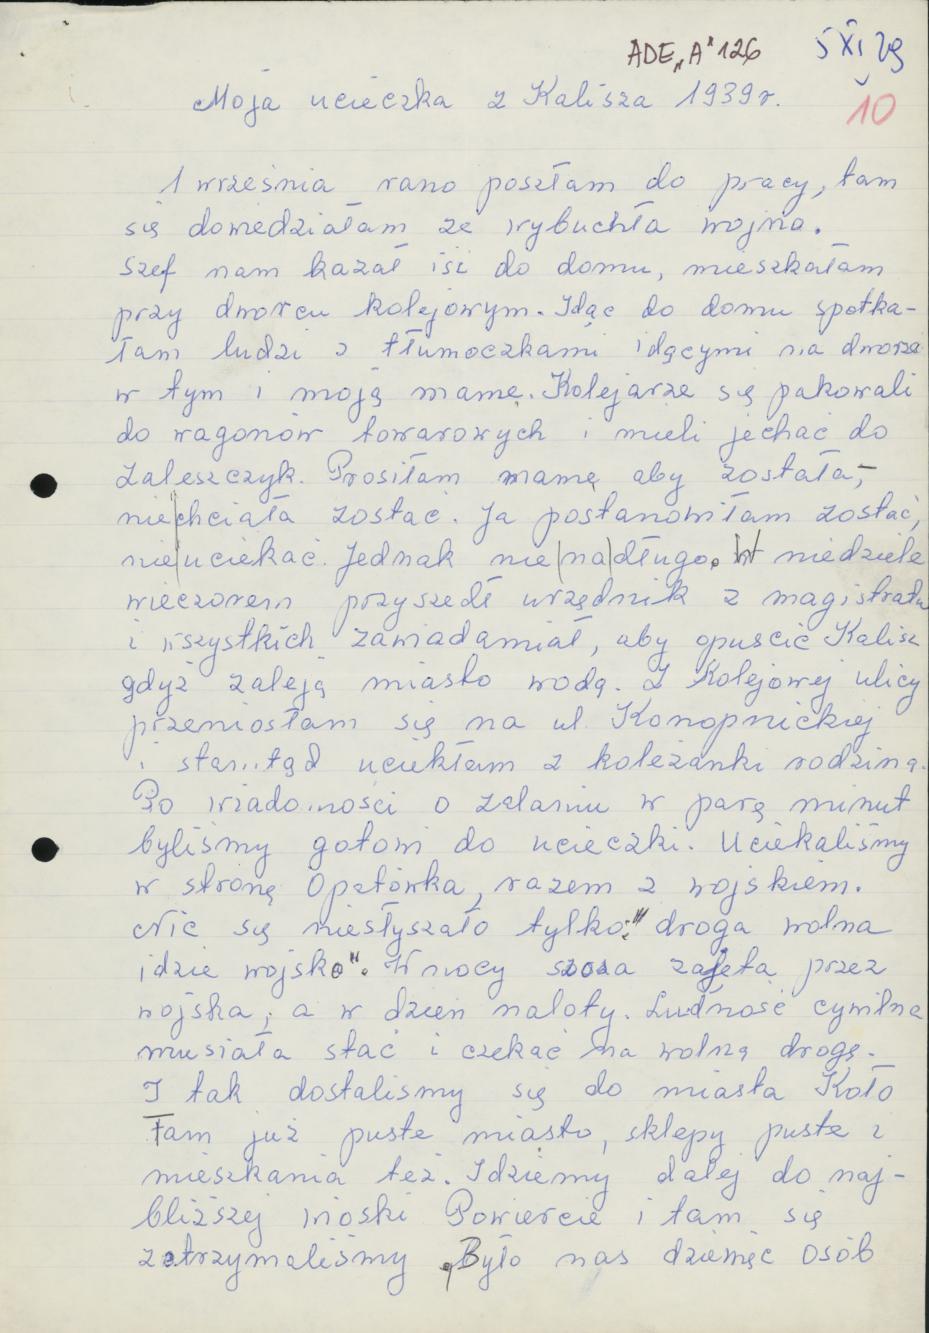 ADE „A" 126
5 XI 79
10
Moja ucieczka z Kalisza 1939 r.
1 września rano poszłam do pracy, tam
się dowiedziałam ze wybuchła wojna.
Szef nam kazał iść do domu, mieszkałam
przy dworcu kolejowym. Idąc do domu spotka-
łam ludzi z tłumoczkami idącymi na dworze
w tym i moją mamę. Kolejarze się pakowali
do wagonów towarowych i mieli jechać do
Zaleszczyk. Prosiłam mamę aby została,
nie|chciała zostać. Ja postanowiłam zostać,
nie|uciekać. Jednak nie|na|długo. W niedziele
wieczorem przyszedł urzędnik z magistratu
i wszystkich zawiadamiał, aby opuścić Kalisz
gdyż zaleją miasto wodą. Z Kolejowej ulicy
przeniosłam się na ul. Konopnickiej
i stamtąd uciekłam z koleżanki rodziną.
Po wiadomości o zalaniu w parę minut
byliśmy gotowi do ucieczki. Uciekaliśmy
w stronę Opatówka, razem z wojskiem.
Nic się niesłyszało tylko: "droga wolna
idzie wojsko". W nocy szosa zajęta przez
wojska, a w dzień naloty. Ludność cywilna
musiała stać i czekać na wolną drogę.
I tak dostaliśmy się do miasta Koło
Tam już puste miasto, sklepy puste i
mieszkania też. Idziemy dalej do naj-
bliższej wioski Powiercie i tam się
zatrzymaliśmy. Było nas dziewięć osób